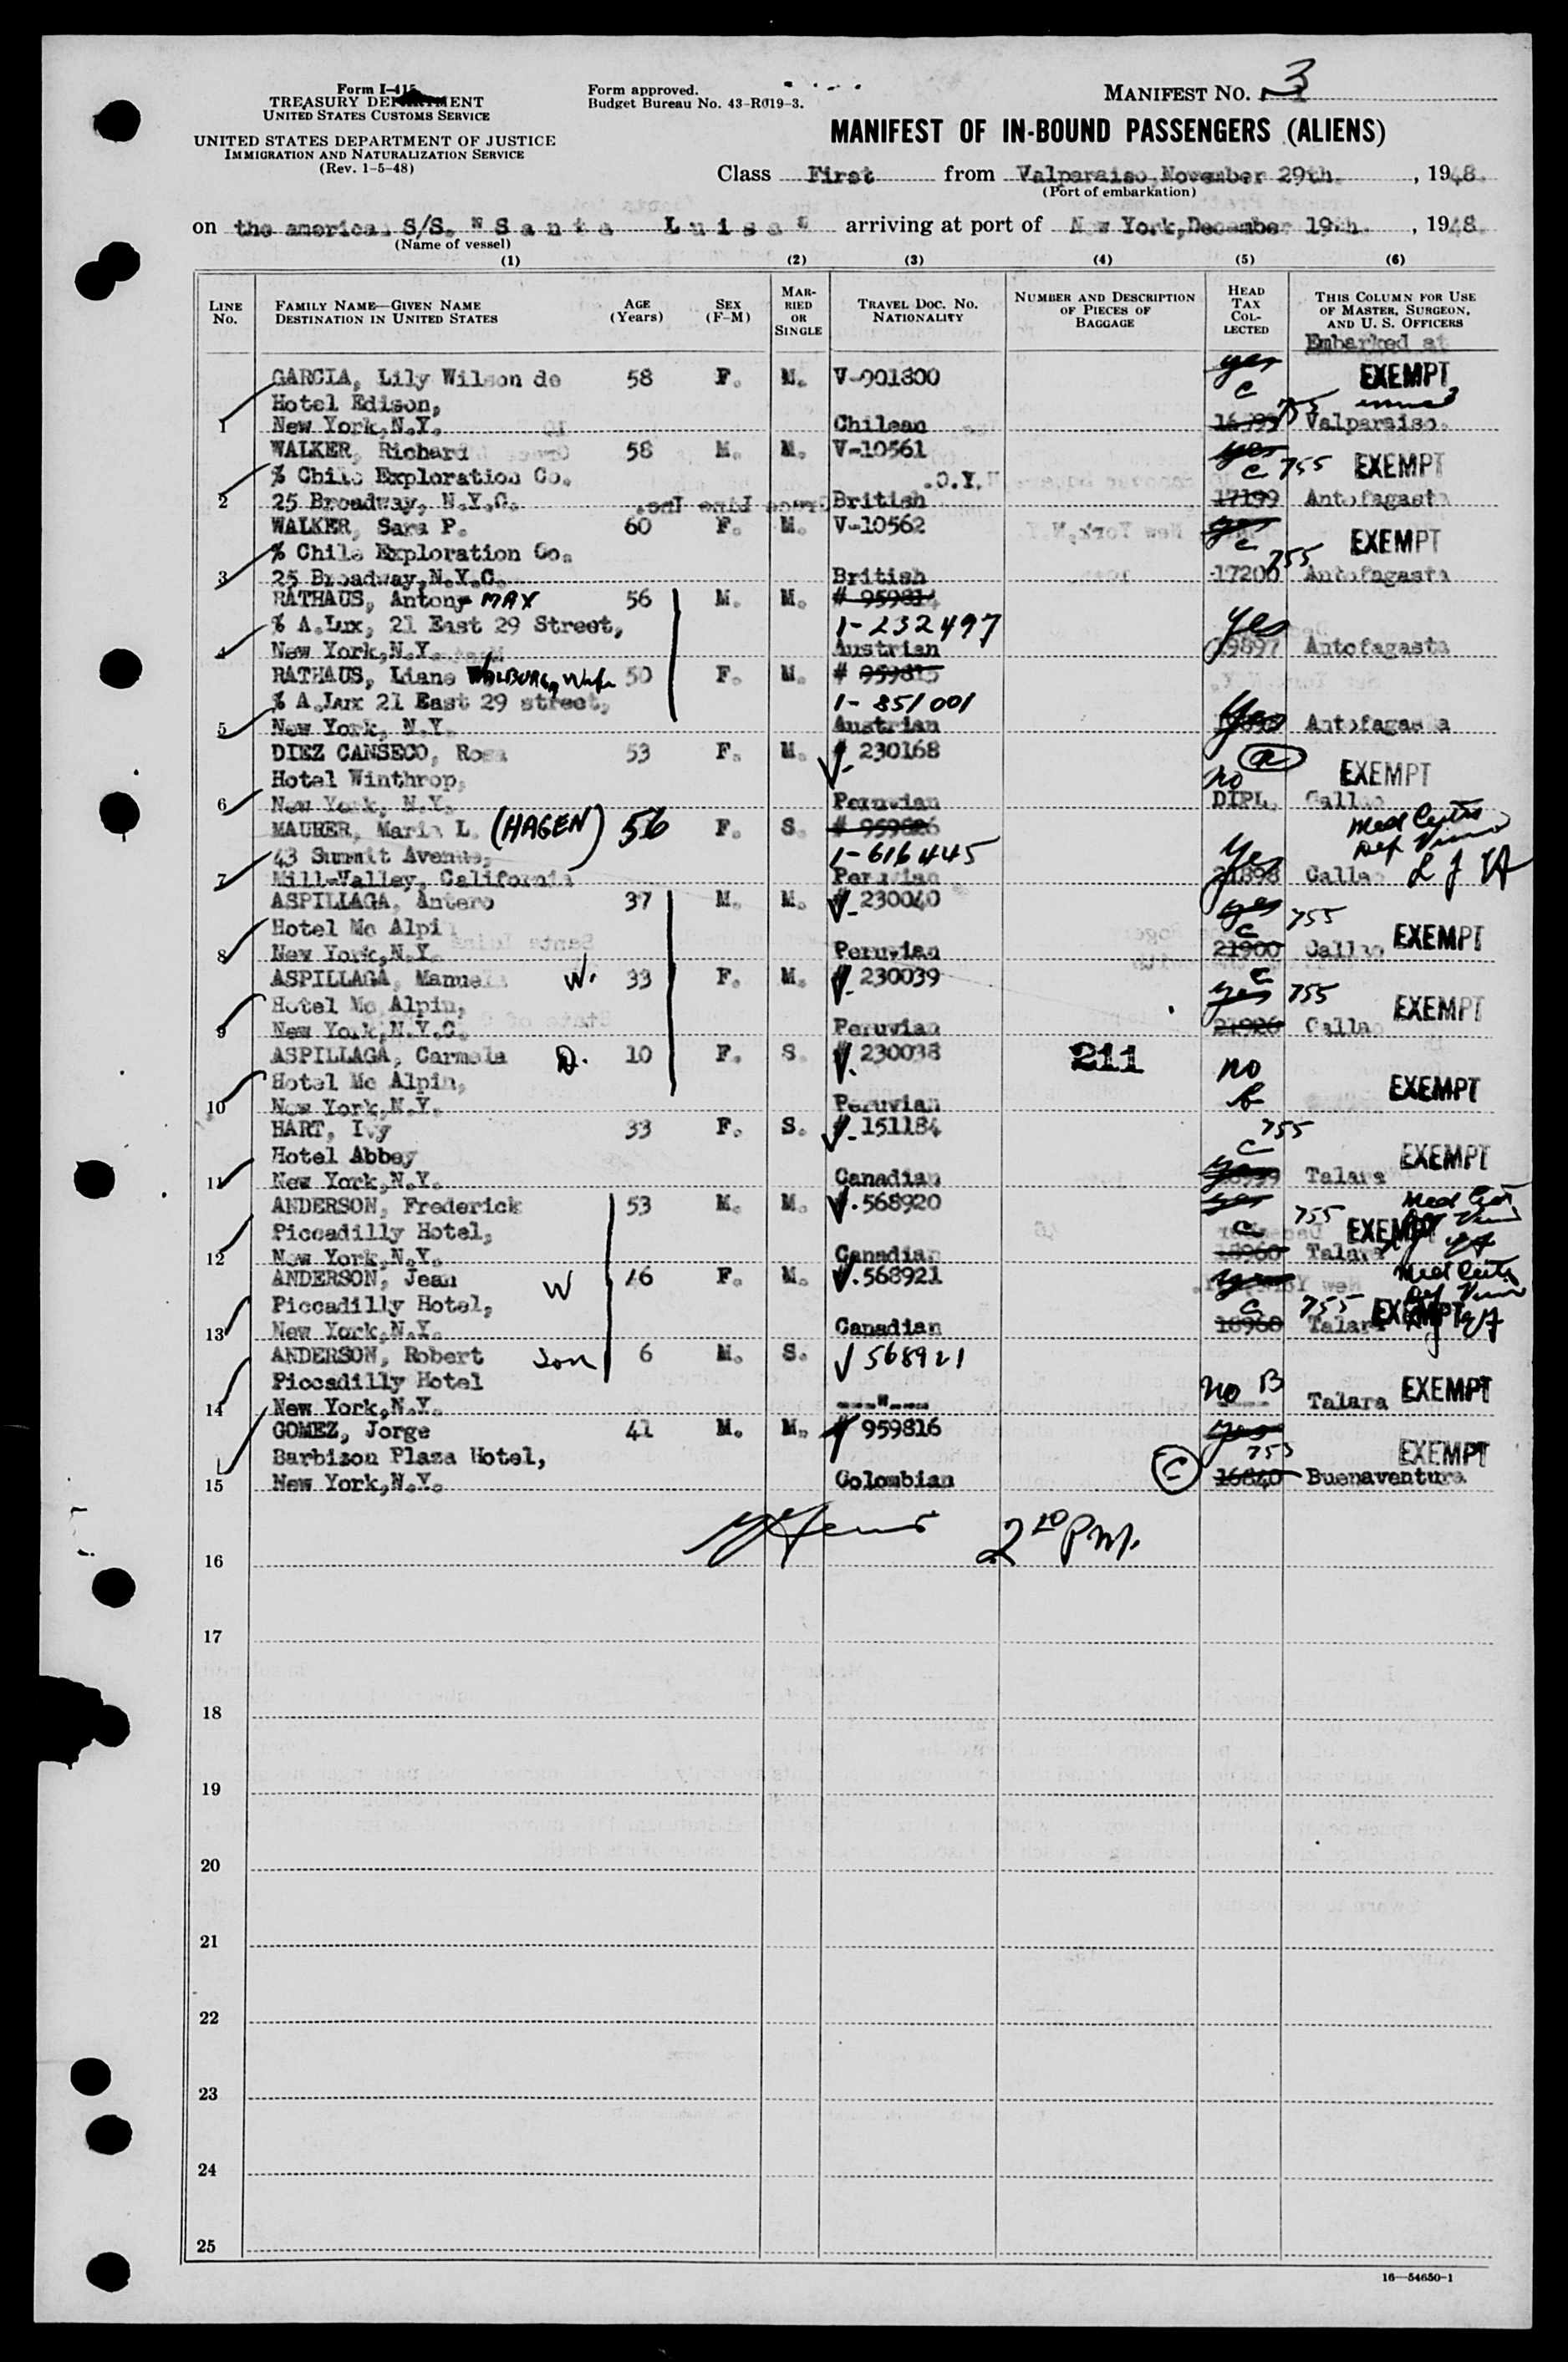 Form I-415
TREASURY DEPARTMENT
UNITED STATES CUSTOMS SERVICE
UNITED STATES DEPARTMENT OF JUSTICE
IMMIGRATION AND NATURALIZATION SERVICE
(Rev. 1-5-48)
Form approved.
Budget Bureau No. 43-R019-3.
MANIFEST NO. 3
MANIFEST OF IN-BOUND PASSENGERS (ALIENS)
Class First from Valparaiso, November 29th. , 1948.
(Port of embarkation)
on the american S/S. "Santa Luisa" arriving at port of New York, December 19th. , 1948.
(Name of vessel)
(1) (2) (3) (4) (5) (6)
LINE No. FAMILY NAME—GIVEN NAME DESTINATION IN UNITED STATES AGE (Years) SEX (F-M) MARRIED OR SINGLE TRAVEL DOC. NO. NATIONALITY NUMBER AND DESCRIPTION OF PIECES OF BAGGAGE HEAD TAX COLLECTED THIS COLUMN FOR USE OF MASTER, SURGEON, AND U. S. OFFICERS
Embarked at
GARCIA, Lily Wilson de 58 F. M. V-901800 yes EXEMPT
Hotel Edison, C 755
1 New York,N.Y. Chilean Valparaiso.
WALKER, Richard 58 M. M. V-10561 yes
% Chile Exploration Co. C 755 EXEMPT
2 25 Broadway, N.Y.C. British 17199 Antofagasta
WALKER, Sara P. 60 F. M. V-10562 yes
% Chile Exploration Co. C 755 EXEMPT
3 25 Broadway,N.Y.C. British 17200 Antofagasta
RATHAUS, Antony MAX 56 M. M. # 959814
% A.Lux, 21 East 29 Street, 1-232497 yes
4 New York,N.Y. Austrian 19897 Antofagasta
RATHAUS, Liane WALBURGA Wife 50 F. M. # 959815
% A.Lux 21 East 29 street, 1-851001
5 New York, N.Y. Austrian yes Antofagasta
DIEZ CANSECO, Rosa 53 F. M. # 230168 a
Hotel Winthrop, no EXEMPT
6 New York, N.Y. Peruvian DIPL. Callao
MAURER, Maria L. (HAGEN) 56 F. S. # 959826 Med Certs
43 Summit Avenue, 1-616445 yes
7 Mill-Valley, California Peruvian 21898 Callao
ASPILLAGA, Antero 37 M. M. # 230040 yes 755
Hotel Mc Alpin C EXEMPT
8 New York,N.Y. Peruvian 21900 Callao
ASPILLAGA, Manuela W. 33 F. M. # 230039 C yes 755
Hotel Mc Alpin, EXEMPT
9 New York,N.Y.C. Peruvian 21926 Callao
ASPILLAGA, Carmela D. 10 F. S. # 230038 211 no
Hotel Mc Alpin, b EXEMPT
10 New York,N.Y. Peruvian
HART, Ivy 33 F. S. # 151184 755
Hotel Abbey C EXEMPT
11 New York,N.Y. Canadian yes Talara
ANDERSON, Frederick 53 M. M. #.568920 yes Med Cert
Piccadilly Hotel, C 755 EXEMPT
12 New York,N.Y. Canadian 18960 Talara
ANDERSON, Jean W 46 F. M. #.568921 yes Med Certs
Piccadilly Hotel, C 755 EXEMPT
13 New York,N.Y. Canadian 18960 Talara
ANDERSON, Robert Son 6 M. S. 568921
Piccadilly Hotel no B EXEMPT
14 New York,N.Y. ---"--- Talara
GOMEZ, Jorge 41 M. M. # 959816 yes
Barbizon Plaza Hotel, 755 EXEMPT
15 New York,N.Y. Colombian C 16840 Buenaventura
2 20 PM.
16
17
18
19
20
21
22
23
24
25
16—54650-1